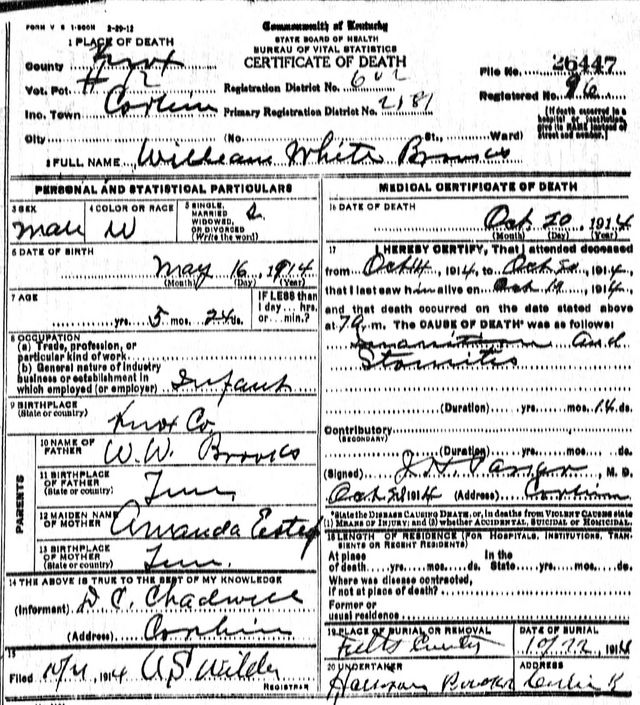 FORM V S 1-500M 2-29-12
Commonwealth of Kentucky
STATE BOARD OF HEALTH
BUREAU OF VITAL STATISTICS
CERTIFICATE OF DEATH
1 PLACE OF DEATH
County Knox
Vot. Pct. # 12
Inc. Town Corbin
City
Registration District No. 602
Primary Registration District No. 2181
(No. St., Ward)
File No. 26447
Registered No. 96
[If death occurred in a hospital or institution, give its NAME instead of street and number.]
2 FULL NAME William White Brooks
PERSONAL AND STATISTICAL PARTICULARS
3 SEX
male
4 COLOR OR RACE
W
5 SINGLE, MARRIED WIDOWED, OR DIVORCED (Write the word)
S.
6 DATE OF BIRTH
May 16, 1914
(Month) (Day) (Year)
7 AGE
yrs. 5 mos. 24 ds.
IF LESS than 1 day... hrs. or... min.?
8 OCCUPATION
(a) Trade, profession, or particular kind of work
(b) General nature of industry business or establishment in which employed (or employer) Infant
9 BIRTHPLACE
(State or country)
Knox Co
PARENTS
10 NAME OF FATHER
W. W. Brooks
11 BIRTHPLACE OF FATHER (State or country)
Tenn
12 MAIDEN NAME OF MOTHER
Amanda Estep
13 BIRTHPLACE OF MOTHER (State or country)
Tenn.
14 THE ABOVE IS TRUE TO THE BEST OF MY KNOWLEDGE
(Informant) D. C. Chadwell
(Address) Corbin
15
Filed 1914
REGISTRAR
MEDICAL CERTIFICATE OF DEATH
16 DATE OF DEATH
Oct 20, 1914
(Month) (Day) (Year)
17 I HEREBY CERTIFY, That I attended deceased
from Oct 14, 1914, to Oct 20, 1914
that I last saw him alive on Oct 19, 1914,
and that death occurred on the date stated above
at 7 a.m. The CAUSE OF DEATH* was as follows:
Inanition and
Stomitis
(Duration) yrs. mos. 14 ds.
Contributory
(SECONDARY)
(Duration) yrs. mos. ds.
(Signed) M. D.
1914 (Address) Corbin
*State the DISEASE CAUSING DEATH, or, in deaths from VIOLENT CAUSES state (1) MEANS OF INJURY; and (2) whether ACCIDENTAL, SUICIDAL or HOMICIDAL.
18 LENGTH OF RESIDENCE (FOR HOSPITALS, INSTITUTIONS, TRANSIENTS OR RECENT RESIDENTS)
At place of death yrs. mos. ds. In the State yrs. mos. ds.
Where was disease contracted, if not at place of death?
Former or usual residence
19 PLACE OF BURIAL OR REMOVAL
DATE OF BURIAL
10/22, 1914
20 UNDERTAKER
ADDRESS